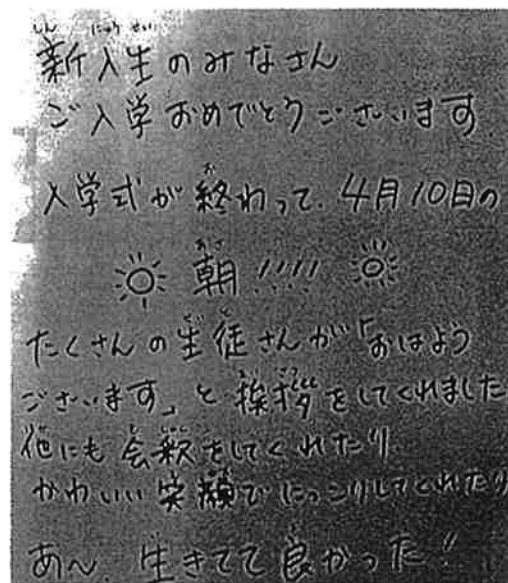 新入生のみなさん
ご入学おめでとうございます
入学式が終わって、4月10日の
朝!!!!
たくさんの生徒さんが「おはよう
ございます」と挨拶をしてくれました
他にも会釈をしてくれたり、
かわいい笑顔でにっこりしてくれたり
あ〜 生きてて良かった!